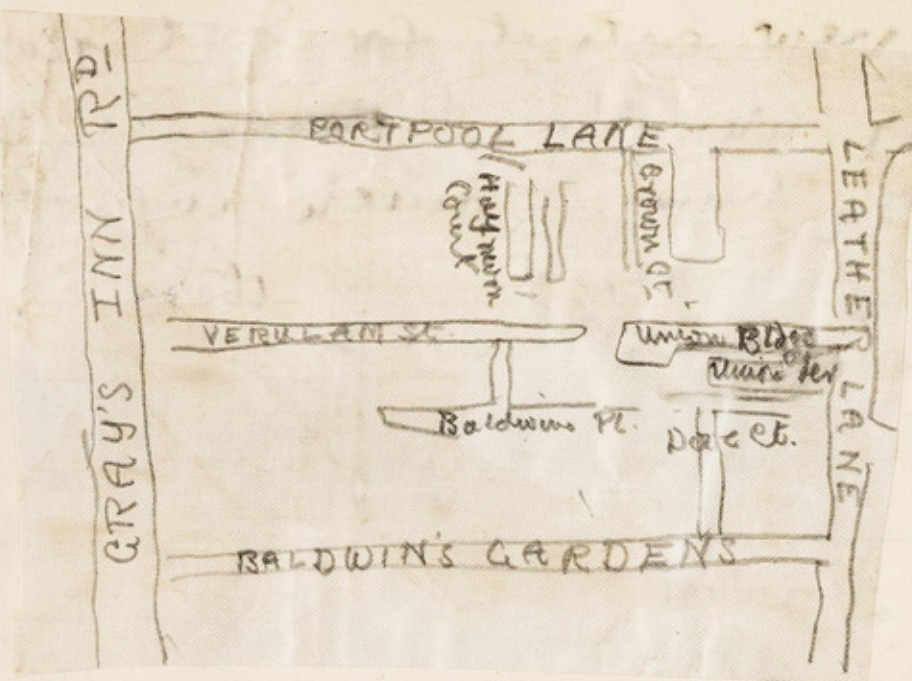 GRAY'S INN RD
PORTPOOL LANE
LEATHER LANE
Half moon
Court
Brown Ct.
VERULAM St.
Union Bldgs
Union
Baldwins Pl.
Ct.
BALDWIN'S GARDENS